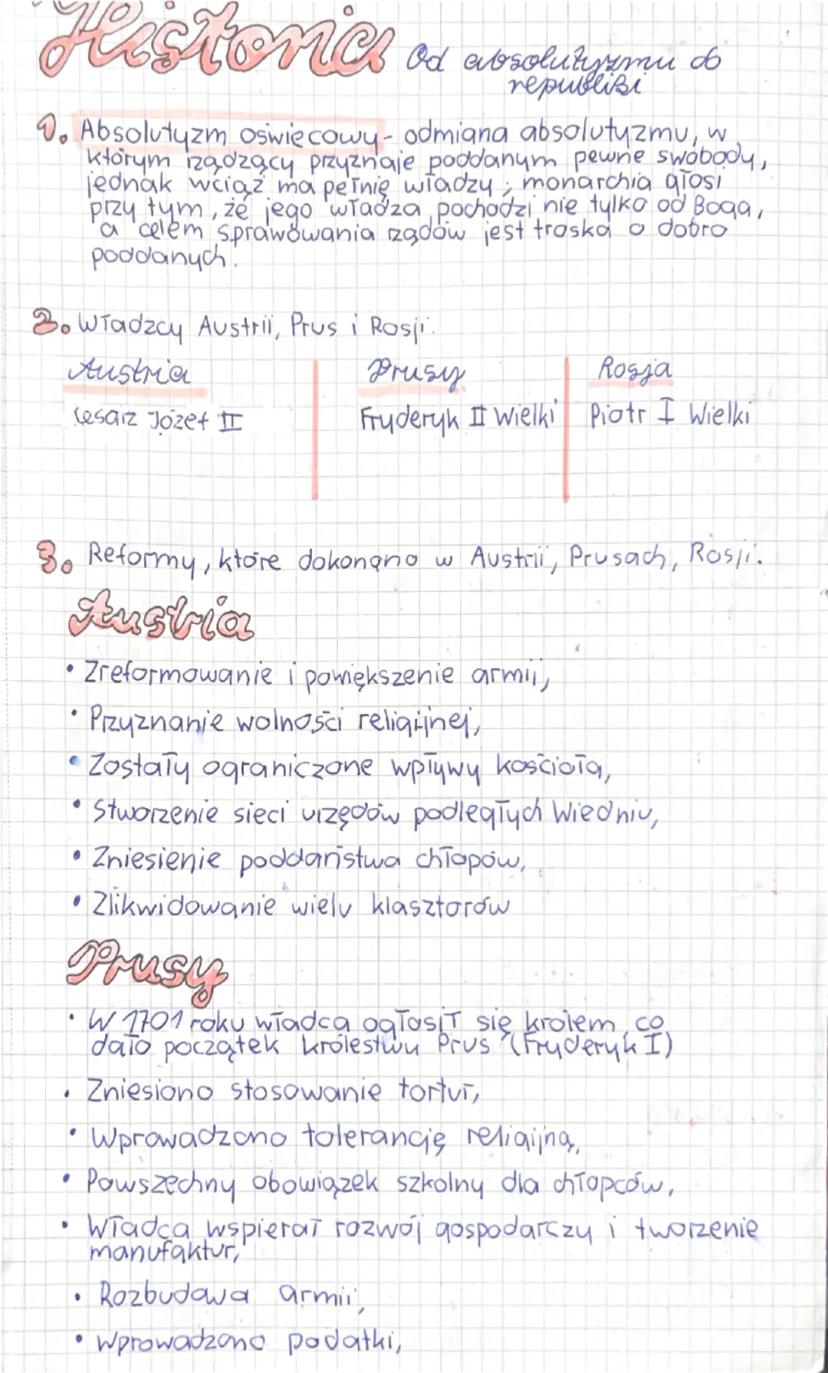 Historia Od absolutyzmu do
republiki
1. Absolutyzm oświecowy - odmiana absolutyzmu, w
którym rządzący przyznaje poddanym pewne swobody,
jednak wciąż ma pełnię władzy; monarchia głosi
przy tym, że jego władza pochodzi nie tylko od Boga,
a celem sprawowania rządów jest troska o dobro
poddanych.
2. Władzcy Austrii, Prus i Rosji.
Austria Prusy Rosja
Cesarz Józef II Fryderyk II Wielki Piotr I Wielki
3. Reformy, które dokonano w Austrii, Prusach, Rosji.
Austria
• Zreformowanie i powiększenie armii,
• Przyznanie wolności religijnej,
• Zostały ograniczone wpływy kościoła,
• Stworzenie sieci urzędów podległych Wiedniu,
• Zniesienie poddaństwa chłopów,
• Zlikwidowanie wielu klasztorów
Prusy
• W 1701 roku władca ogłosił się królem, co
dało początek królestwu Prus (Fryderyk I)
• Zniesiono stosowanie tortur,
• Wprowadzono tolerancję religijną,
• Powszechny obowiązek szkolny dla chłopców,
• Władca wspierał rozwój gospodarczy i tworzenie
manufaktur,
• Rozbudowa armii,
• Wprowadzono podatki,